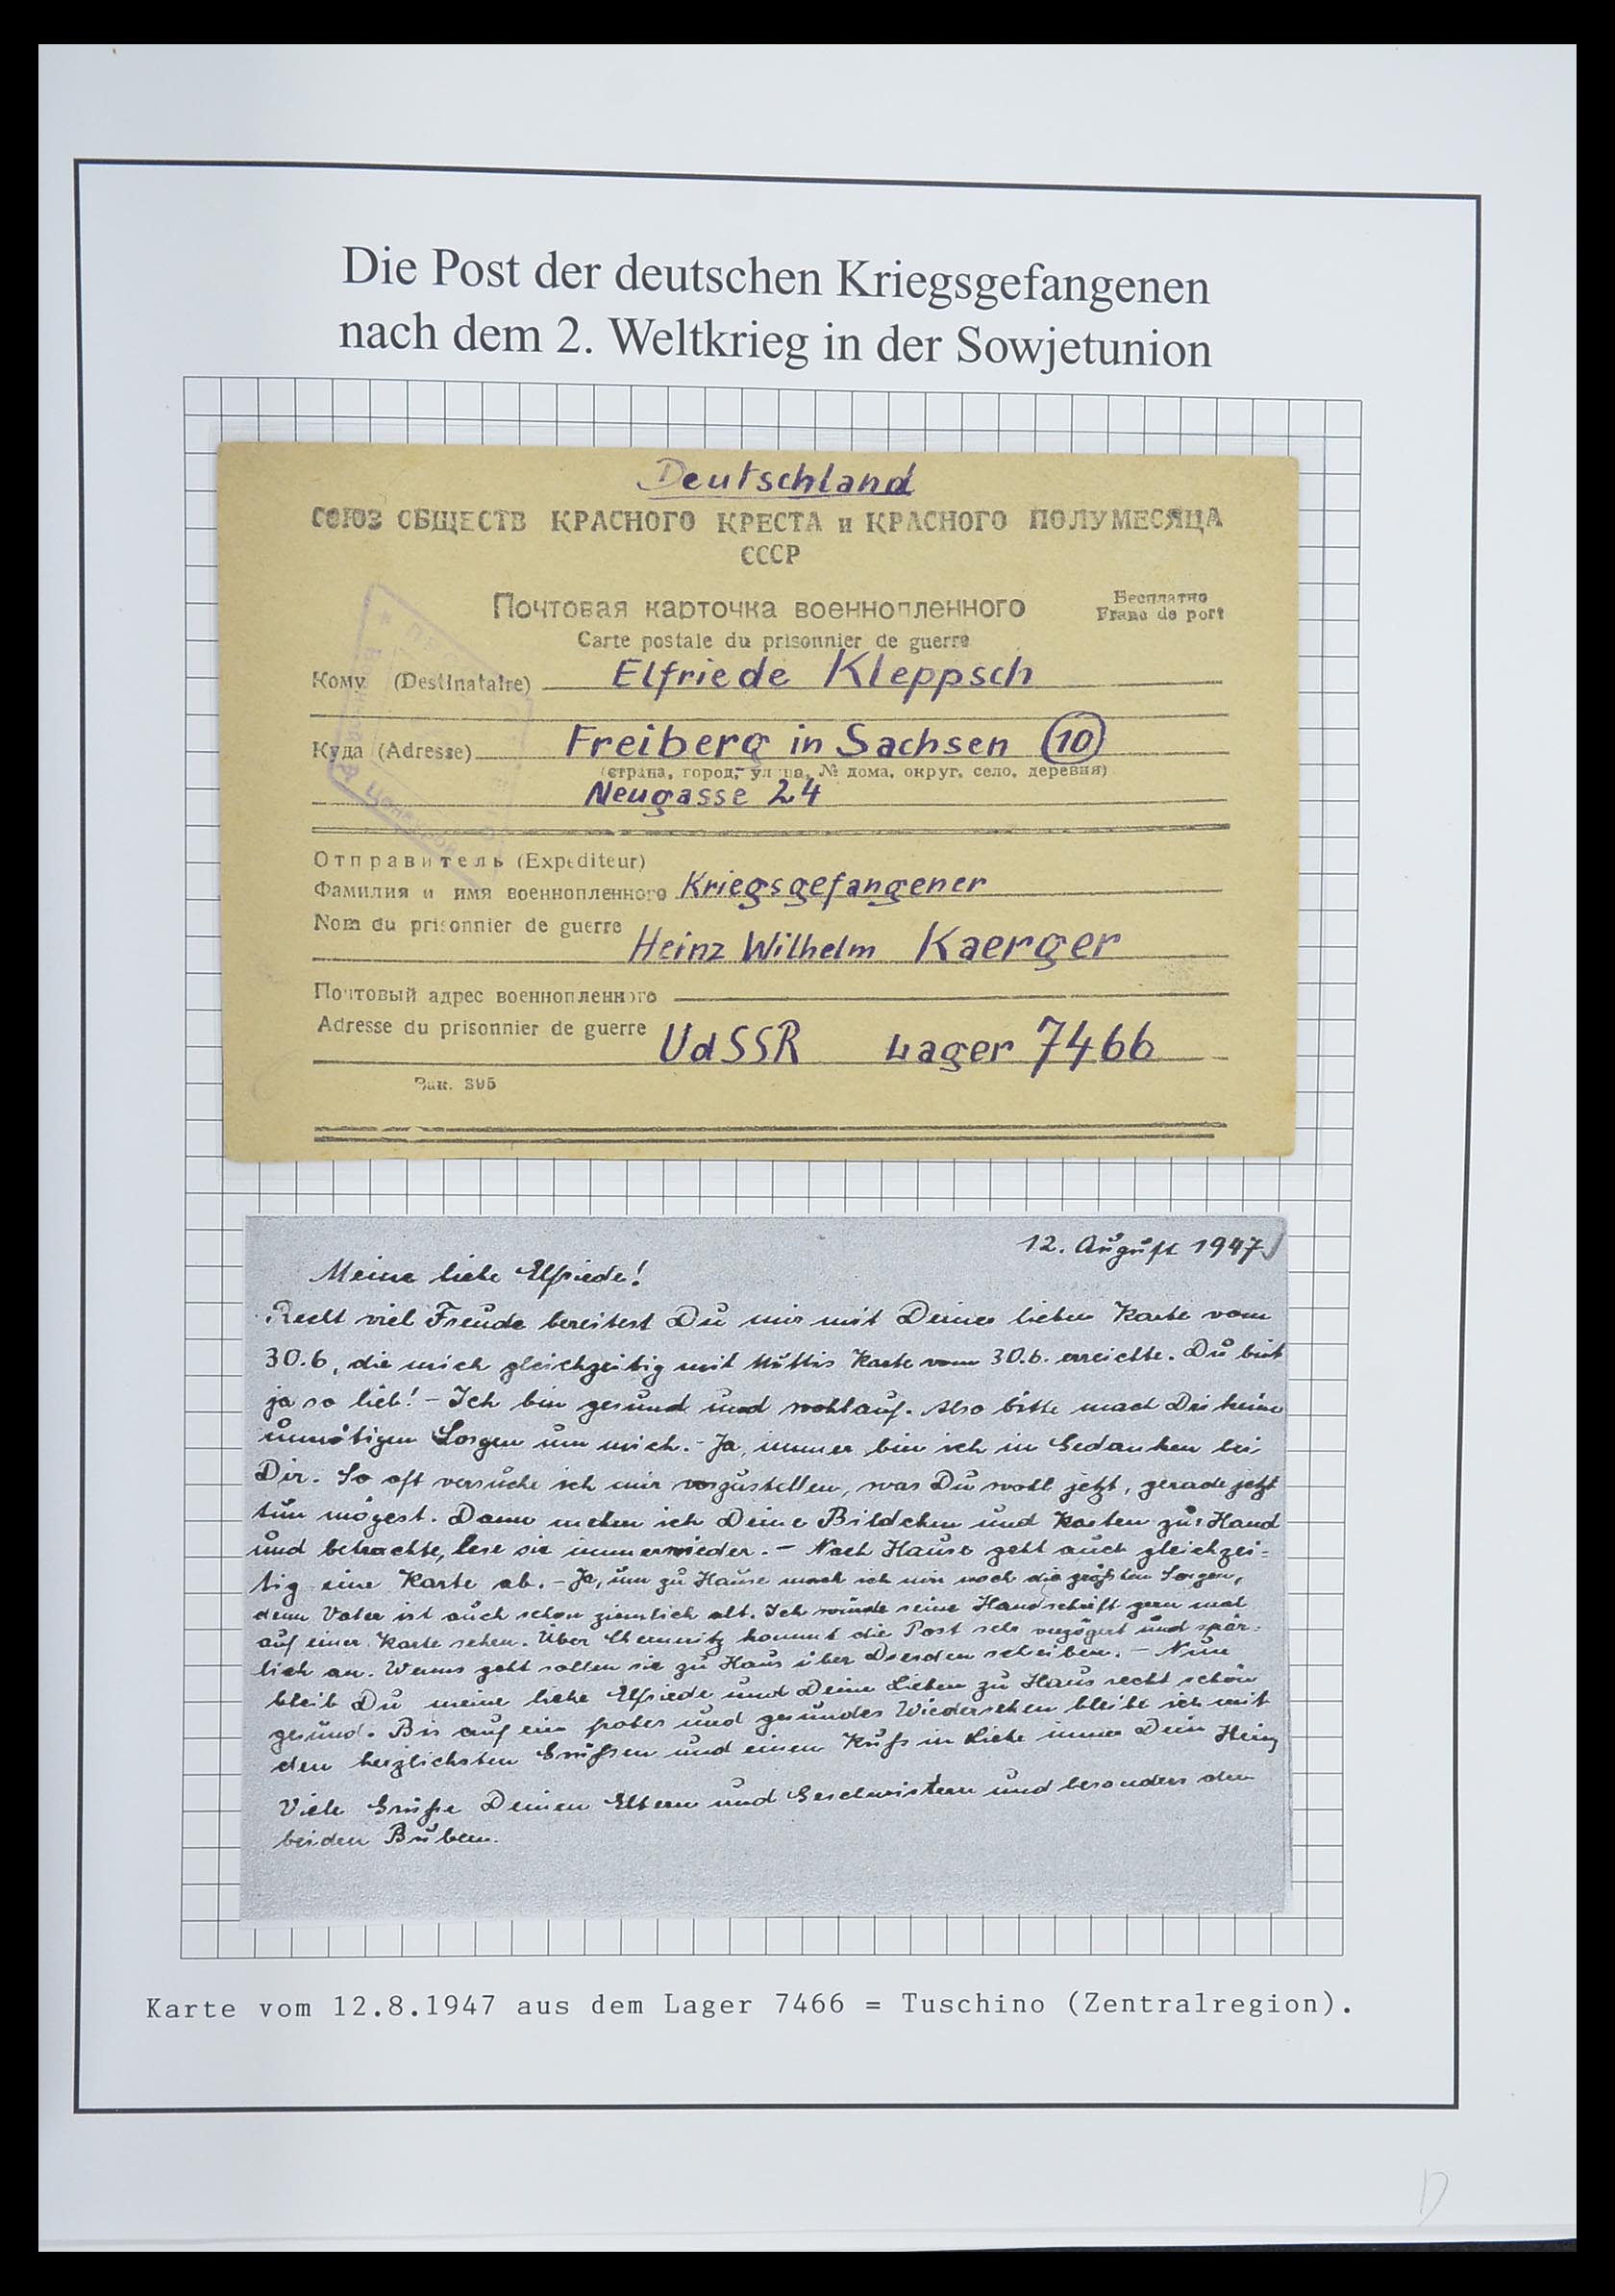 Die Post der deutschen Kriegsgefangenen
nach dem 2. Weltkrieg in der Sowjetunion
Deutschland
СОЮЗ ОБЩЕСТВ КРАСНОГО КРЕСТА и КРАСНОГО ПОЛУМЕСЯЦА
СССР
Почтовая карточка военнопленного
Бесплатно
Franc de port
Carte postale du prisonnier de guerre
Кому (Destinataire) Elfriede Kleppsch
Куда (Adresse) Freiberg in Sachsen 10
(страна, город, улица, № дома, округ, село, деревня)
Neugasse 24
Отправитель (Expéditeur)
Фамилия и имя военнопленного Kriegsgefangener
Nom du prisonnier de guerre Heinz Wilhelm Kaerger
Почтовый адрес военнопленного
Adresse du prisonnier de guerre UdSSR Lager 7466
Зак. 395
12. August 1947
Meine liebe Elfriede!
Recht viel Freude bereitest Du mir mit Deiner lieben Karte vom
30.6, die mich gleichzeitig mit Muttis Karte vom 30.6. erreichte. Du bist
ja so lieb! - Ich bin gesund und wohlauf. Also bitte mach Dir keine
unnötigen Sorgen um mich. - Ja, immer bin ich in Gedanken bei
Dir. So oft versuche ich mir vorzustellen, was Du wohl jetzt, gerade jetzt
tun mögest. Dann nehm ich Deine Bildchen und Karten zur Hand
und betrachte, lese sie immerwieder. - Nach Hause geht auch gleichzei=
tig eine Karte ab. - Ja, um zu Hause mach ich mir noch die größten Sorgen,
denn Vater ist auch schon ziemlich alt. Ich würde seine Handschrift gern mal
auf einer Karte sehen. Über Chemnitz kommt die Post sehr verzögert und spär=
lich an. Wenns geht sollen sie zu Haus über Dresden schreiben. - Nun
bleib Du meine liebe Elfriede und Deine Lieben zu Haus recht schön
gesund. Bis auf ein frohes und gesundes Wiedersehen bleibe ich mit
den herzlichsten Grüßen und einen Kuß in Liebe immer Dein Heinz
Viele Grüße Deinen Eltern und Geschwistern und besonders den
beiden Buben.
Karte vom 12.8.1947 aus dem Lager 7466 = Tuschino (Zentralregion).
D